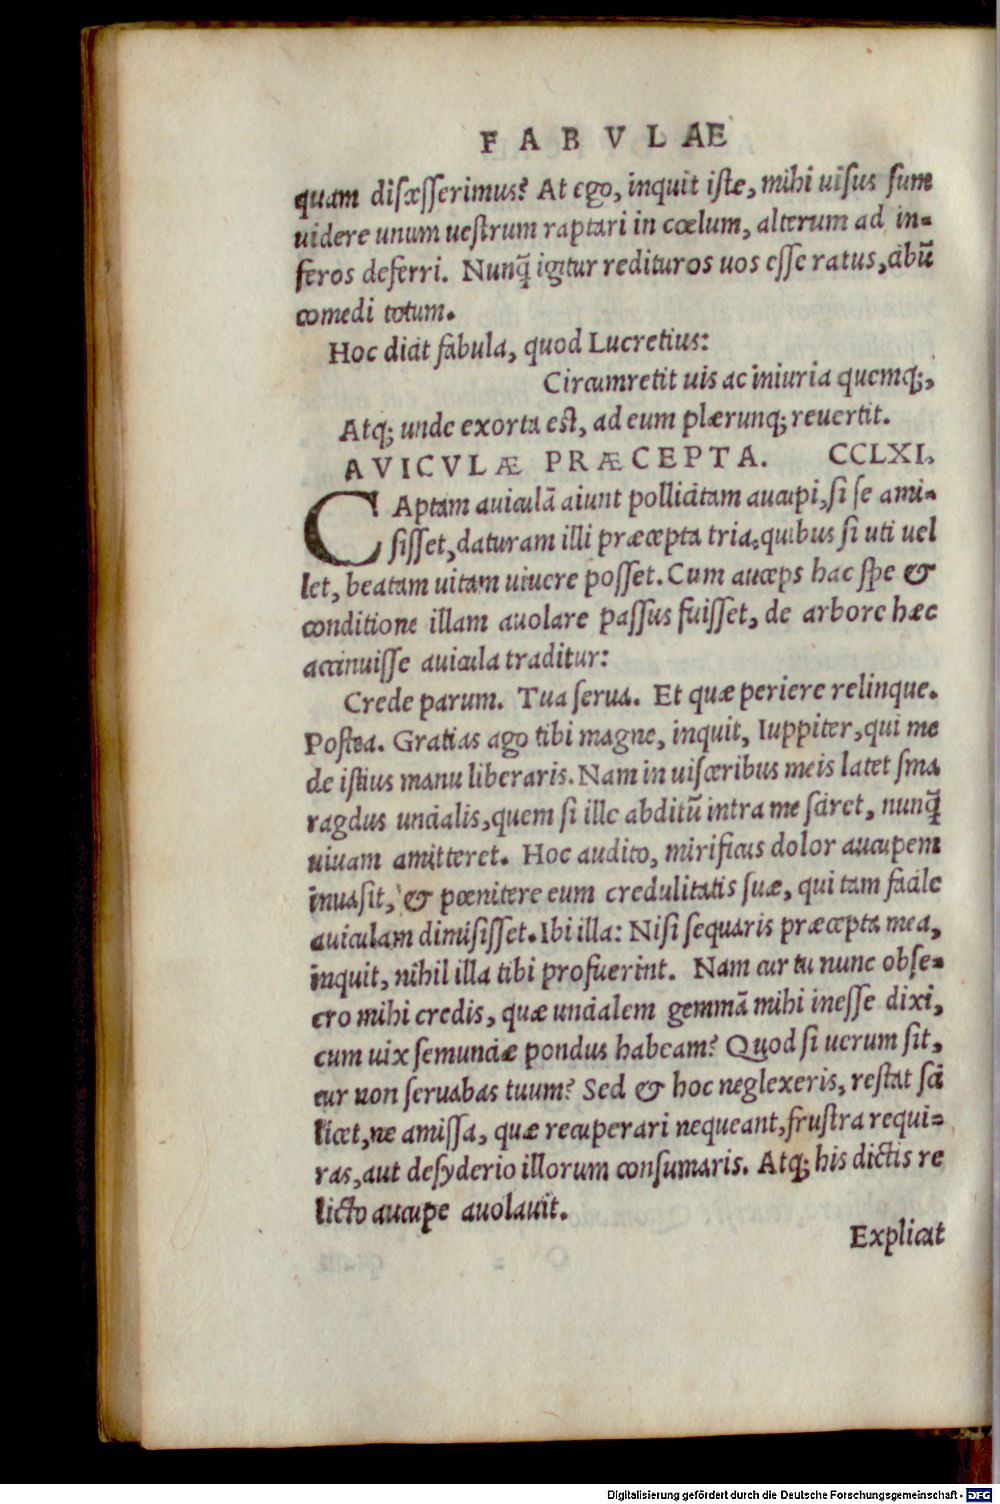 FABVLAE
quam discesserimus? At ego, inquit iste, mihi uisus sum
uidere unum uestrum raptari in cœlum, alterum ad in-
feros deferri. Nunq̃ igitur redituros uos esse ratus, cibũ
comedi totum.
Hoc dicit fabula, quod Lucretius:
Circumretit uis ac iniuria quemq;,
Atq; unde exorta est, ad eum plærunq; reuertit.
AVICVLÆ PRÆCEPTA. CCLXI.
CAptam auiculã aiunt pollicitam aucupi, si se ami-
sisset, daturam illi præcepta tria, quibus si uti uel
let, beatam uitam uiuere posset. Cum auceps hac spe &
conditione illam auolare passus fuisset, de arbore hæc
accinuisse auicula traditur:
Crede parum. Tua serua. Et quæ periere relinque.
Postea. Gratias ago tibi magne, inquit, Iuppiter, qui me
de istius manu liberaris. Nam in uisceribus meis latet sma
ragdus uncialis, quem si ille abditũ intra me sciret, nunq̃
uiuam amitteret. Hoc audito, mirificus dolor aucupem
inuasit, & pœnitere eum credulitatis suæ, qui tam facile
auiculam dimisisset. Ibi illa: Nisi sequaris præcepta mea,
inquit, nihil illa tibi profuerint. Nam cur tu nunc obse-
cro mihi credis, quæ uncialem gemmã mihi inesse dixi,
cum uix semunciæ pondus habeam? Quod si uerum sit,
cur non seruabas tuum? Sed & hoc neglexeris, restat sci
licet, ne amissa, quæ recuperari nequeant, frustra requi-
ras, aut desyderio illorum consumaris. Atq; his dictis re
licto aucupe auolauit.
Explicat
Digitalisierung gefördert durch die Deutsche Forschungsgemeinschaft - DFG